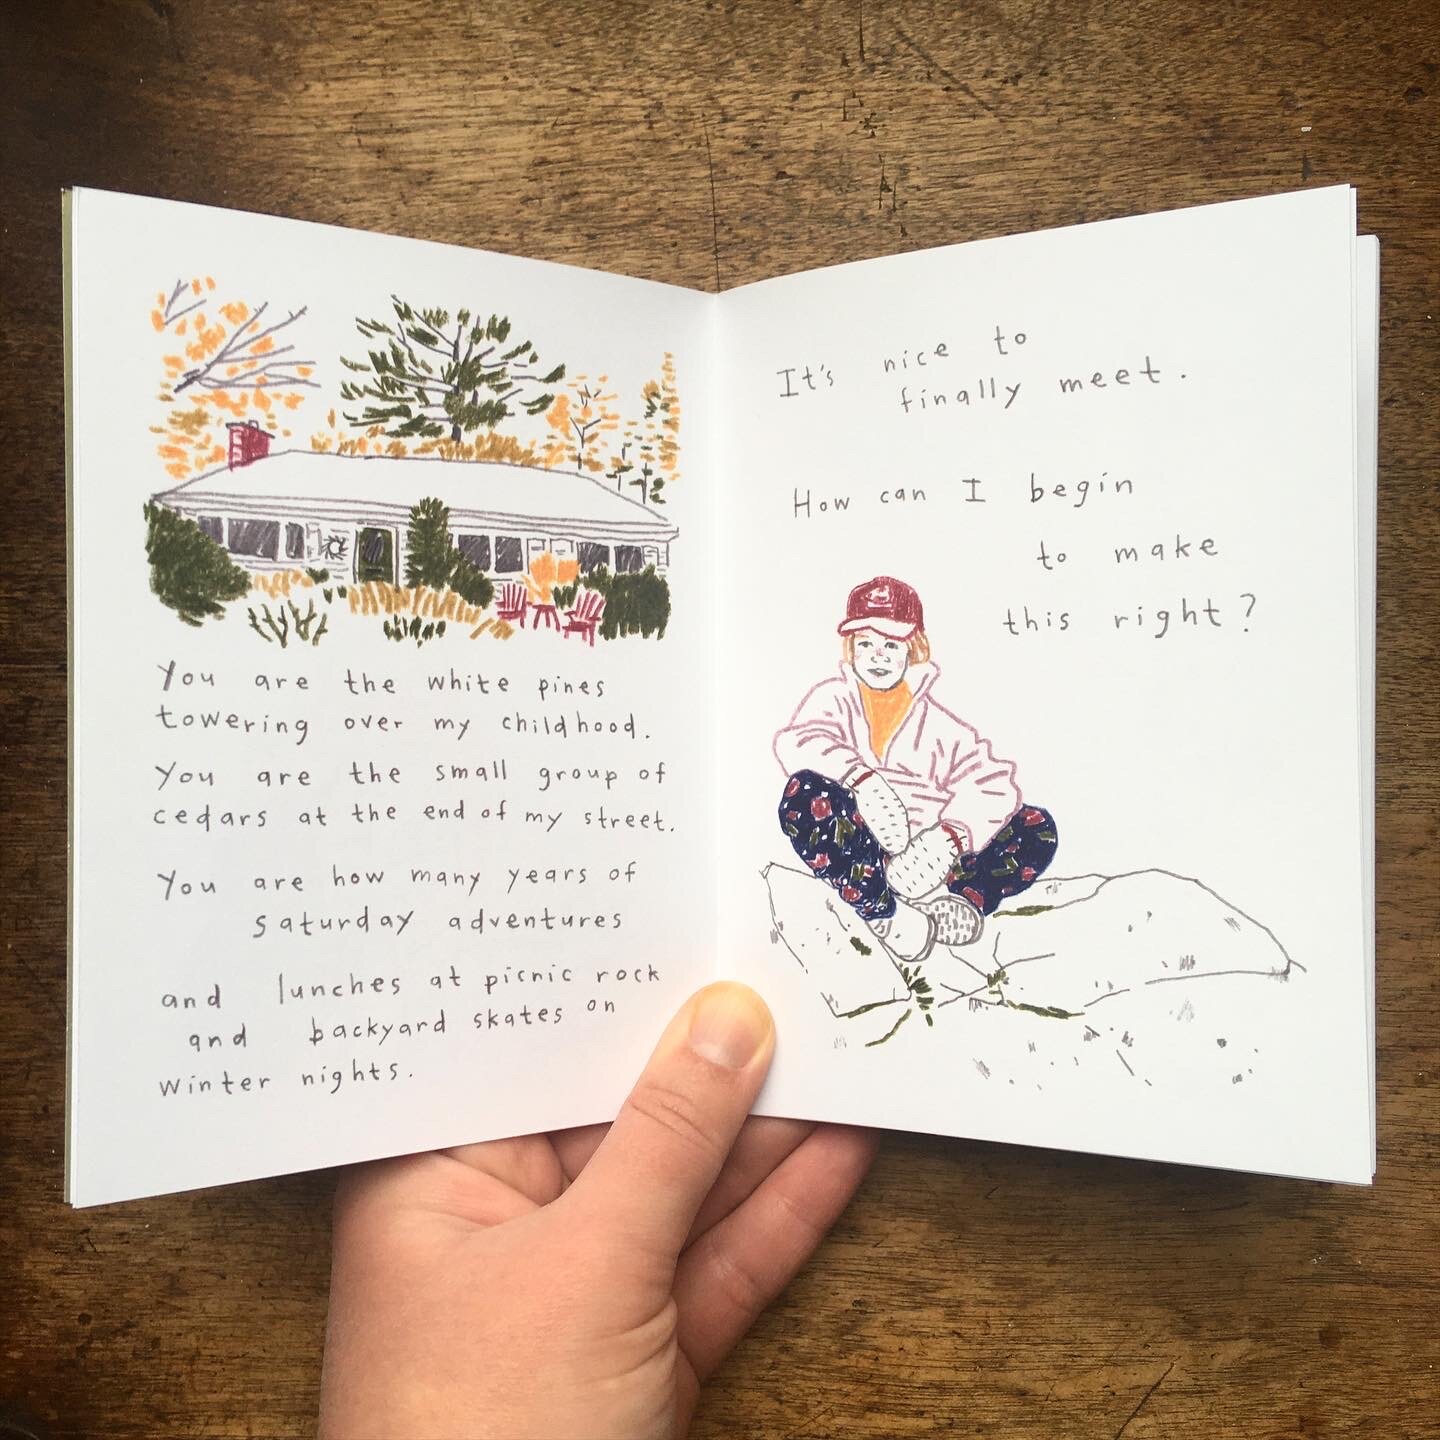 You are the white pines
towering over my childhood.
You are the small group of
cedars at the end of my street.
You are how many years of
saturday adventures
and lunches at picnic rock
and backyard skates on
winter nights.
It's nice to
finally meet.
How can I begin
to make
this right?